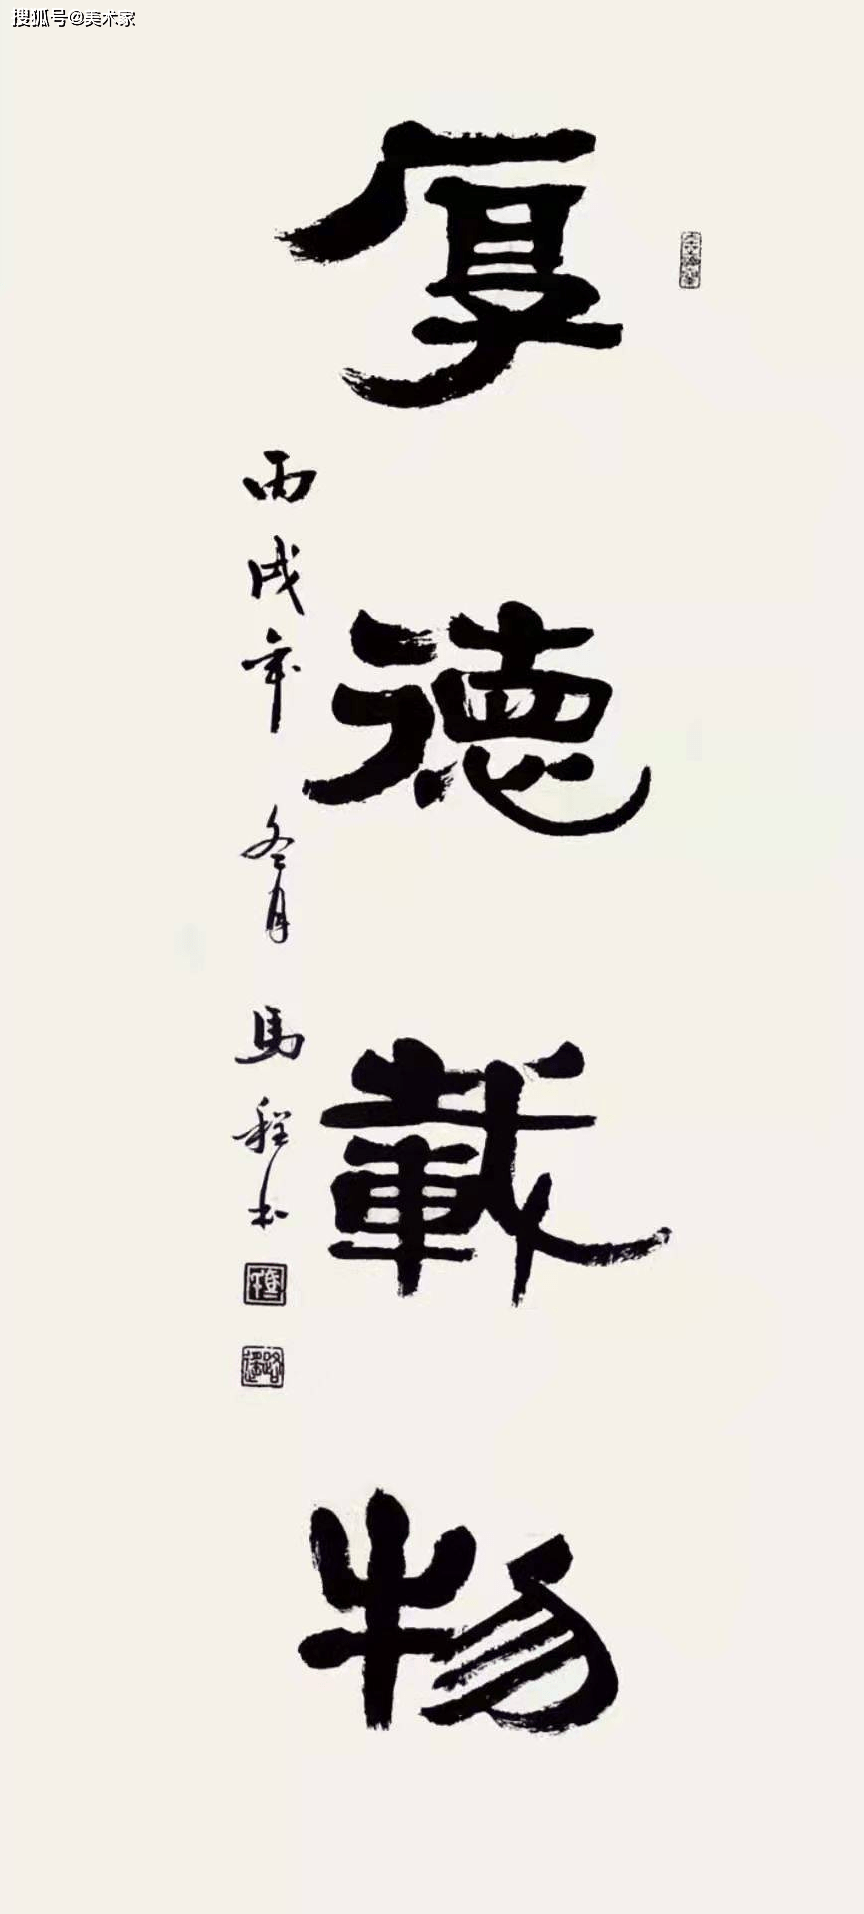 搜狐号@美术家
厚德載物
丙戌年 冬月 馬程书